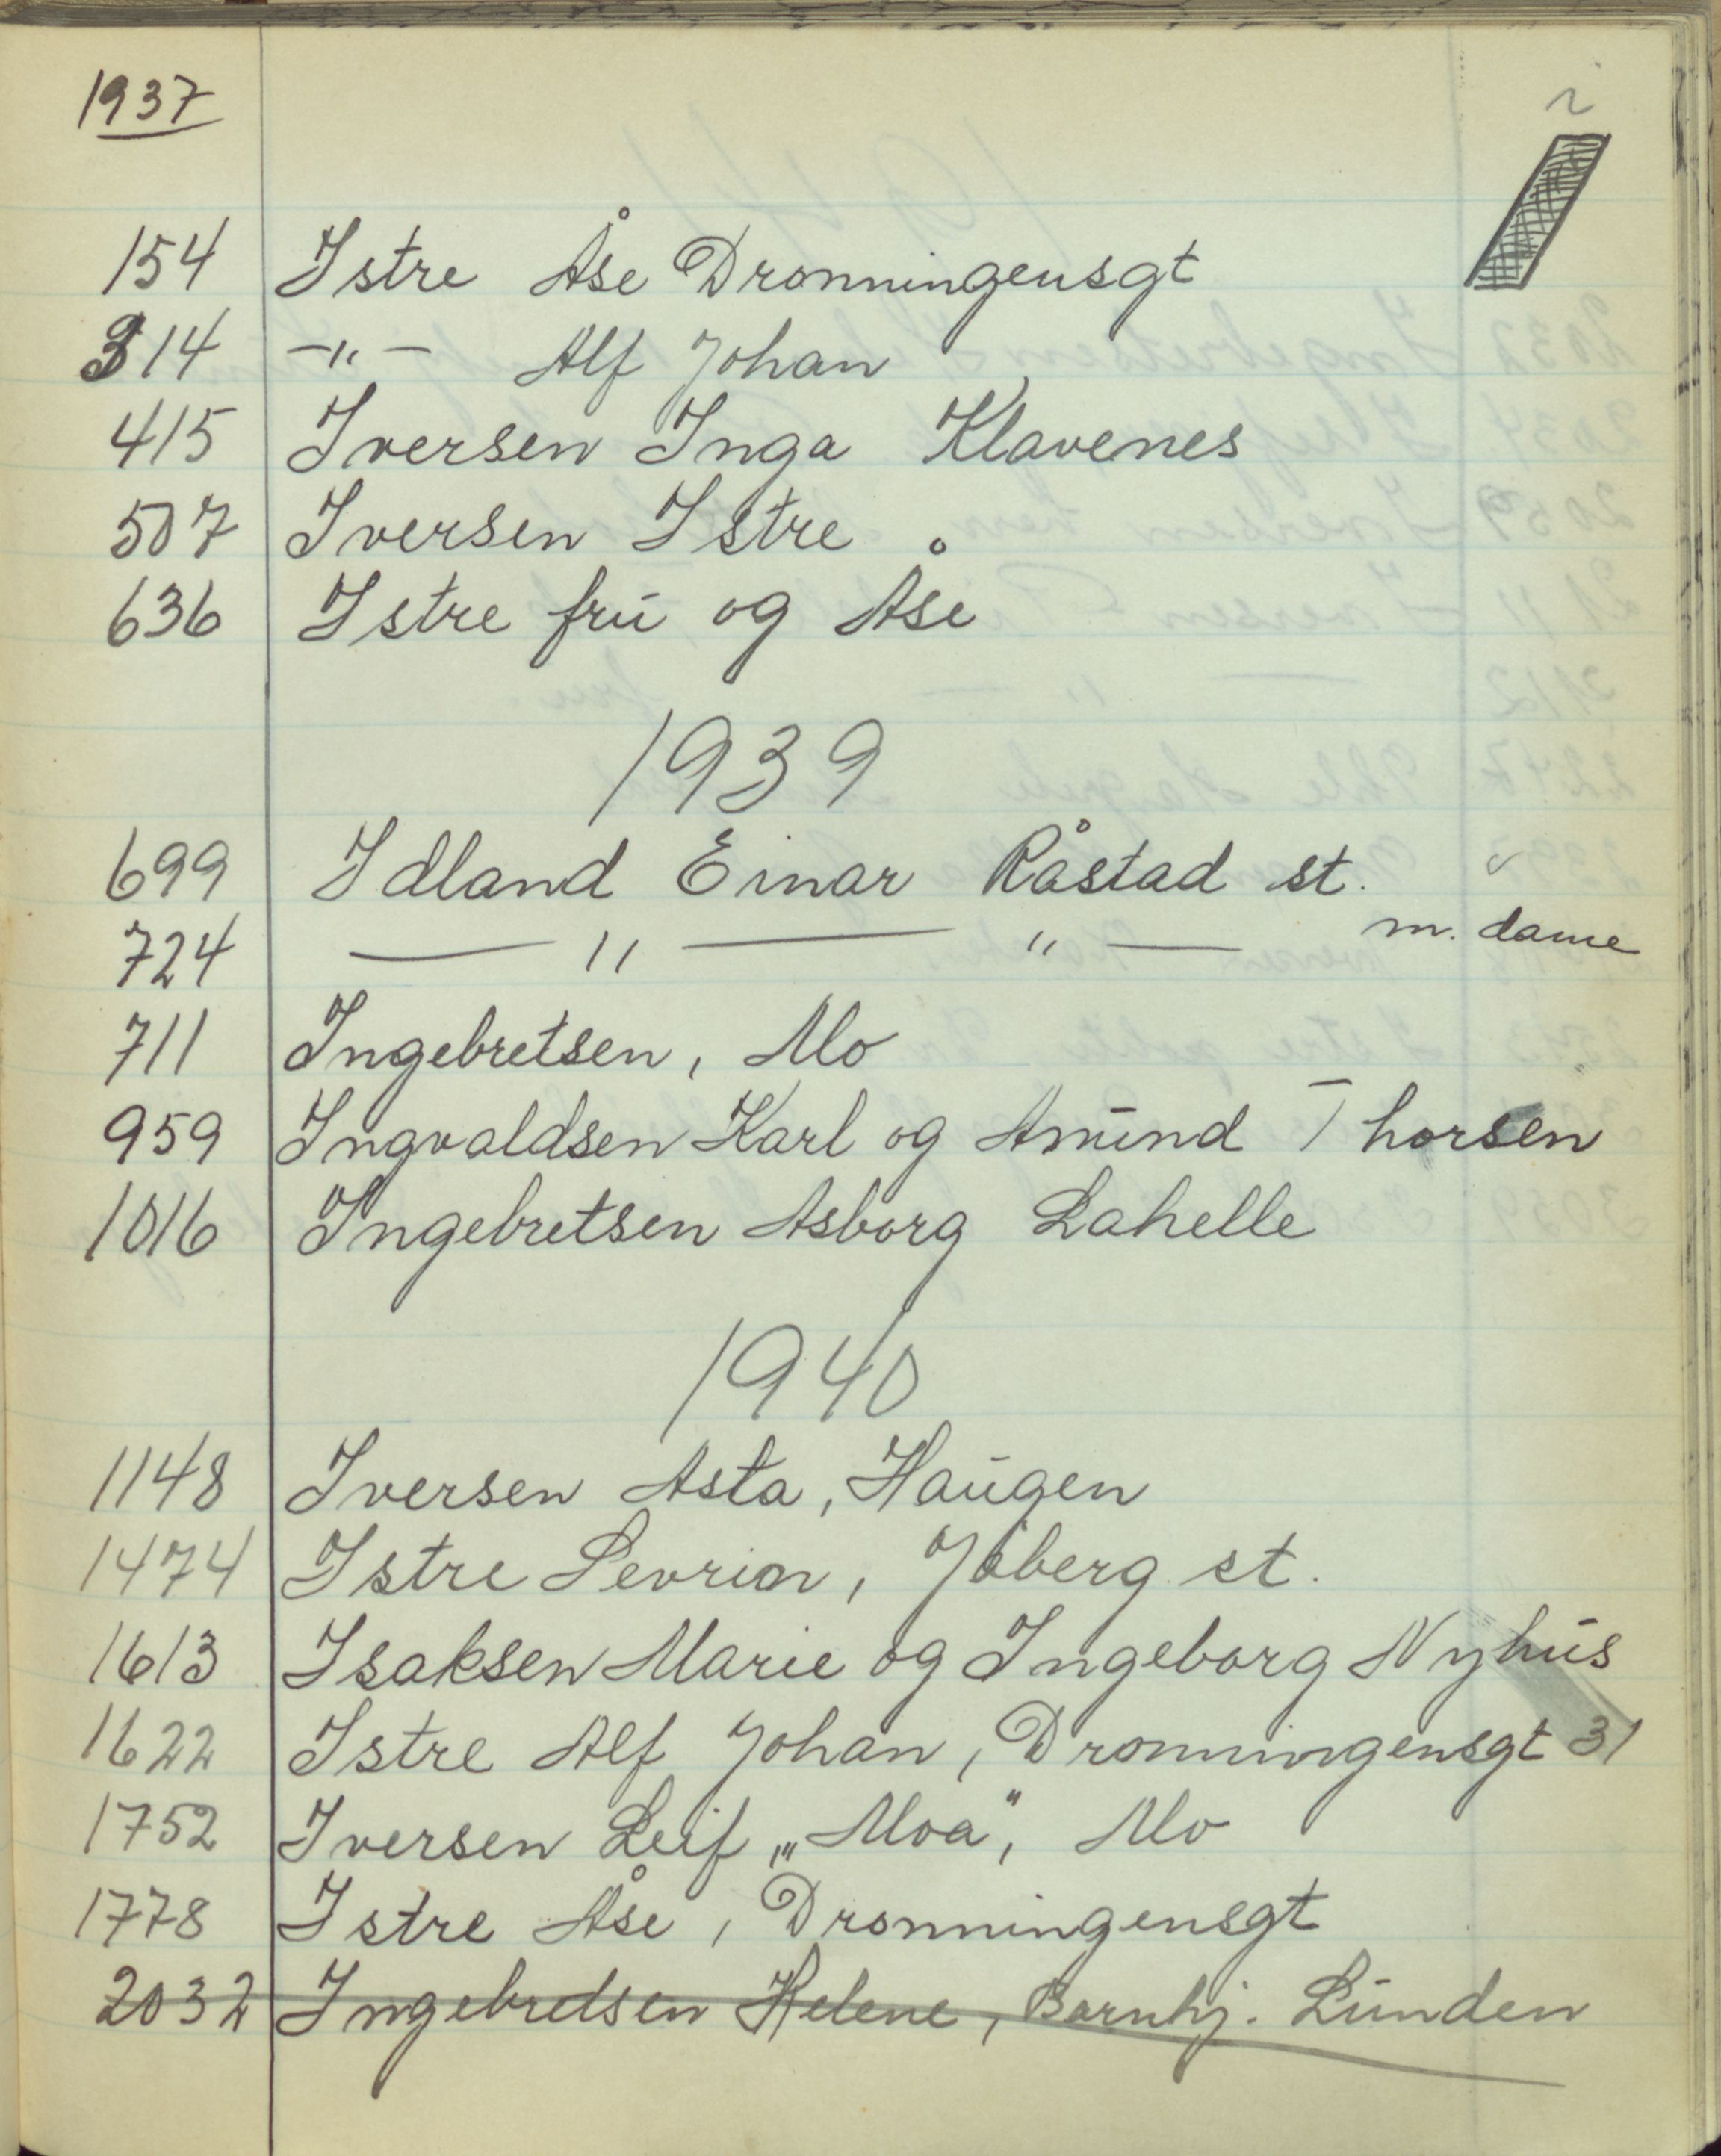 1937
I
154 Istre Åse Dronningensgt
314 -"- Alf Johan
415 Iversen Inga Klavenes
507 Iversen Istre
636 Istre frū og Åse
1939
699 Idland Einar Råstad st.
724 — " — " — m. dame
711 Ingebretsen, Mo
959 Ingvaldsen Karl og Amūnd Thorsen
1016 Ingebretsen Asborg Lahelle
1940
1148 Iversen Asta, Haūgen
1474 Istre Sevrin, Jåberg st.
1613 Isaksen Marie og Ingeborg Nyhūs
1622 Istre Alf Johan, Dronningensgt 31
1752 Iversen Leif „Moa", Mo
1778 Istre Åse, Dronningensgt
2032 Ingebretsen Helene, Barnhj. Lūnden